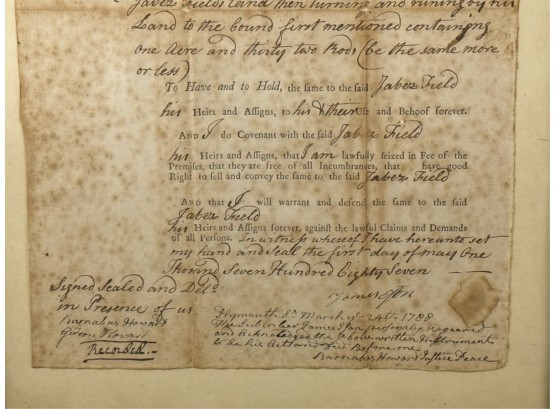 Jabez Fields land then turning and runing by his
Land to the bound first mentioned containing
one Acre and thirty two Rods (be the same more
or less)
To Have and to Hold, the same to the said Jabez Field
his Heirs and Assigns, to his & their Use and Behoof forever.
AND I do Covenant with the said Jabez Field
his Heirs and Assigns, that I am lawfully seized in Fee of the
Premises, that they are free of all Incumbrances, that have good
Right to sell and convey the same to the said Jabez Field
AND that I will warrant and defend the same to the said
Jabez Field
his Heirs and Assigns forever, against the lawful Claims and Demands
of all Persons. In witness whereof I have hereunto set
my hand and seal the first day of may One
Thousd Seven Hundred Eighty Seven
James
Signed Sealed and Deld
in Presence of us
Barnabas Howard
Howard
Recorded.
Plymouth Ss March ye 24th 1788
The Subscriber James personally appeared
and acknowledged the above written Instrument
to be his Act and Before me
Barnabas Howard Justice Peace